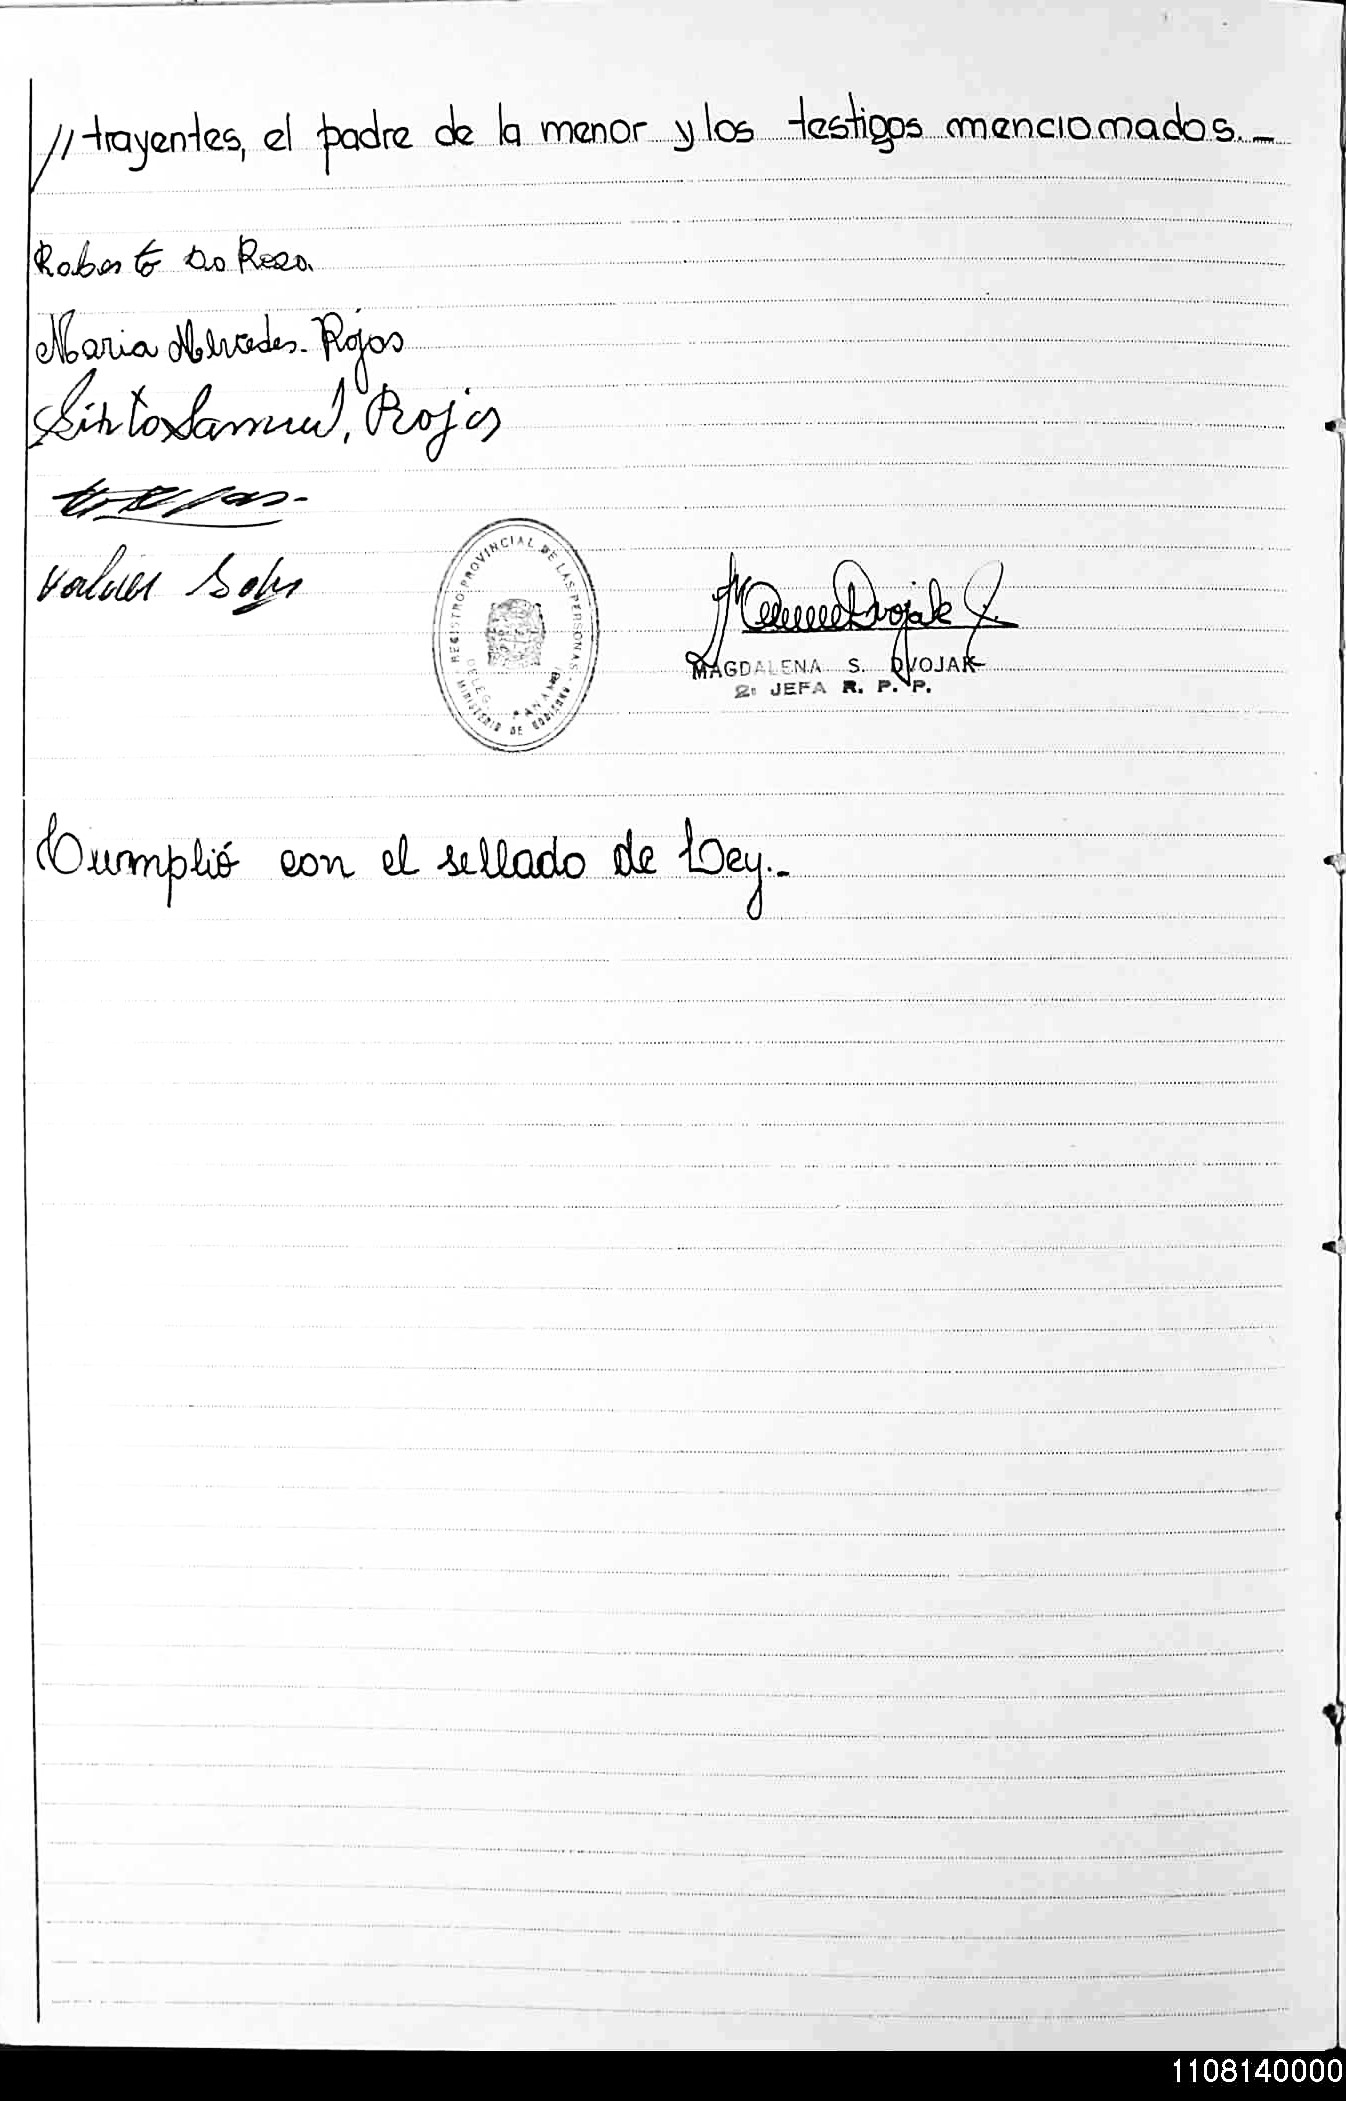 // trayentes, el padre de la menor y los testigos mencionados.-
Roberto Do Rosa
Maria Mercedes. Rojas
Sixto Samuel, Rojas
REGISTRO PROVINCIAL DE LAS PERSONAS
DELEG. PANAMBI
MINISTERIO DE GOBIERNO
MAGDALENA S. DVOJAK
2a JEFA R. P. P.
Cumplió con el sellado de Ley.-
1108140000